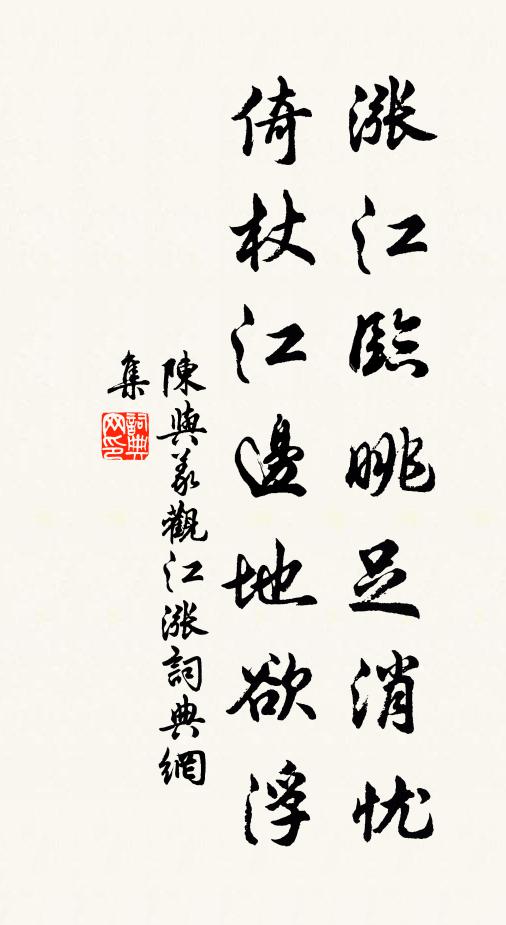 漲江臨眺足消忧
倚杖江邊地欲浮
陳與义觀江漲詞典網
集
詞典
网印